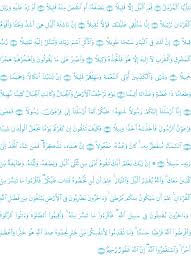 يَٰٓأَيُّهَا ٱلْمُزَّمِّلُ ۝ قُمِ ٱلَّيْلَ إِلَّا قَلِيلًا ۝ نِّصْفَهُۥٓ أَوِ ٱنقُصْ مِنْهُ قَلِيلًا ۝ أَوْ زِدْ عَلَيْهِ وَرَتِّلِ
ٱلْقُرْءَانَ تَرْتِيلًا ۝ إِنَّا سَنُلْقِى عَلَيْكَ قَوْلًا ثَقِيلًا ۝ إِنَّ نَاشِئَةَ ٱلَّيْلِ هِىَ أَشَدُّ وَطْـًٔا وَأَقْوَمُ
قِيلًا ۝ إِنَّ لَكَ فِى ٱلنَّهَارِ سَبْحًا طَوِيلًا ۝ وَٱذْكُرِ ٱسْمَ رَبِّكَ وَتَبَتَّلْ إِلَيْهِ تَبْتِيلًا ۝ رَّبُّ
ٱلْمَشْرِقِ وَٱلْمَغْرِبِ لَآ إِلَٰهَ إِلَّا هُوَ فَٱتَّخِذْهُ وَكِيلًا ۝ وَٱصْبِرْ عَلَىٰ مَا يَقُولُونَ وَٱهْجُرْهُمْ هَجْرًا
جَمِيلًا ۝ وَذَرْنِى وَٱلْمُكَذِّبِينَ أُو۟لِى ٱلنَّعْمَةِ وَمَهِّلْهُمْ قَلِيلًا ۝ إِنَّ لَدَيْنَآ أَنكَالًا وَجَحِيمًا ۝ وَطَعَامًا
ذَا غُصَّةٍ وَعَذَابًا أَلِيمًا ۝ يَوْمَ تَرْجُفُ ٱلْأَرْضُ وَٱلْجِبَالُ وَكَانَتِ ٱلْجِبَالُ كَثِيبًا مَّهِيلًا
۝ إِنَّآ أَرْسَلْنَآ إِلَيْكُمْ رَسُولًا شَٰهِدًا عَلَيْكُمْ كَمَآ أَرْسَلْنَآ إِلَىٰ فِرْعَوْنَ رَسُولًا ۝ فَعَصَىٰ
فِرْعَوْنُ ٱلرَّسُولَ فَأَخَذْنَٰهُ أَخْذًا وَبِيلًا ۝ فَكَيْفَ تَتَّقُونَ إِن كَفَرْتُمْ يَوْمًا يَجْعَلُ ٱلْوِلْدَٰنَ شِيبًا
۝ ٱلسَّمَآءُ مُنفَطِرٌۢ بِهِۦ كَانَ وَعْدُهُۥ مَفْعُولًا ۝ إِنَّ هَٰذِهِۦ تَذْكِرَةٌ فَمَن شَآءَ ٱتَّخَذَ إِلَىٰ رَبِّهِۦ
سَبِيلًا ۝ ۞ إِنَّ رَبَّكَ يَعْلَمُ أَنَّكَ تَقُومُ أَدْنَىٰ مِن ثُلُثَىِ ٱلَّيْلِ وَنِصْفَهُۥ وَثُلُثَهُۥ وَطَآئِفَةٌ مِّنَ
ٱلَّذِينَ مَعَكَ وَٱللَّهُ يُقَدِّرُ ٱلَّيْلَ وَٱلنَّهَارَ عَلِمَ أَن لَّن تُحْصُوهُ فَتَابَ عَلَيْكُمْ فَٱقْرَءُوا۟ مَا تَيَسَّرَ مِنَ
ٱلْقُرْءَانِ عَلِمَ أَن سَيَكُونُ مِنكُم مَّرْضَىٰ وَءَاخَرُونَ يَضْرِبُونَ فِى ٱلْأَرْضِ يَبْتَغُونَ مِن فَضْلِ ٱللَّهِ
وَءَاخَرُونَ يُقَٰتِلُونَ فِى سَبِيلِ ٱللَّهِ فَٱقْرَءُوا۟ مَا تَيَسَّرَ مِنْهُ وَأَقِيمُوا۟ ٱلصَّلَوٰةَ وَءَاتُوا۟ ٱلزَّكَوٰةَ وَأَقْرِضُوا۟
ٱللَّهَ قَرْضًا حَسَنًا وَمَا تُقَدِّمُوا۟ لِأَنفُسِكُم مِّنْ خَيْرٍ تَجِدُوهُ عِندَ ٱللَّهِ هُوَ خَيْرًا وَأَعْظَمَ
أَجْرًا وَٱسْتَغْفِرُوا۟ ٱللَّهَ إِنَّ ٱللَّهَ غَفُورٌ رَّحِيمٌۢ ۝